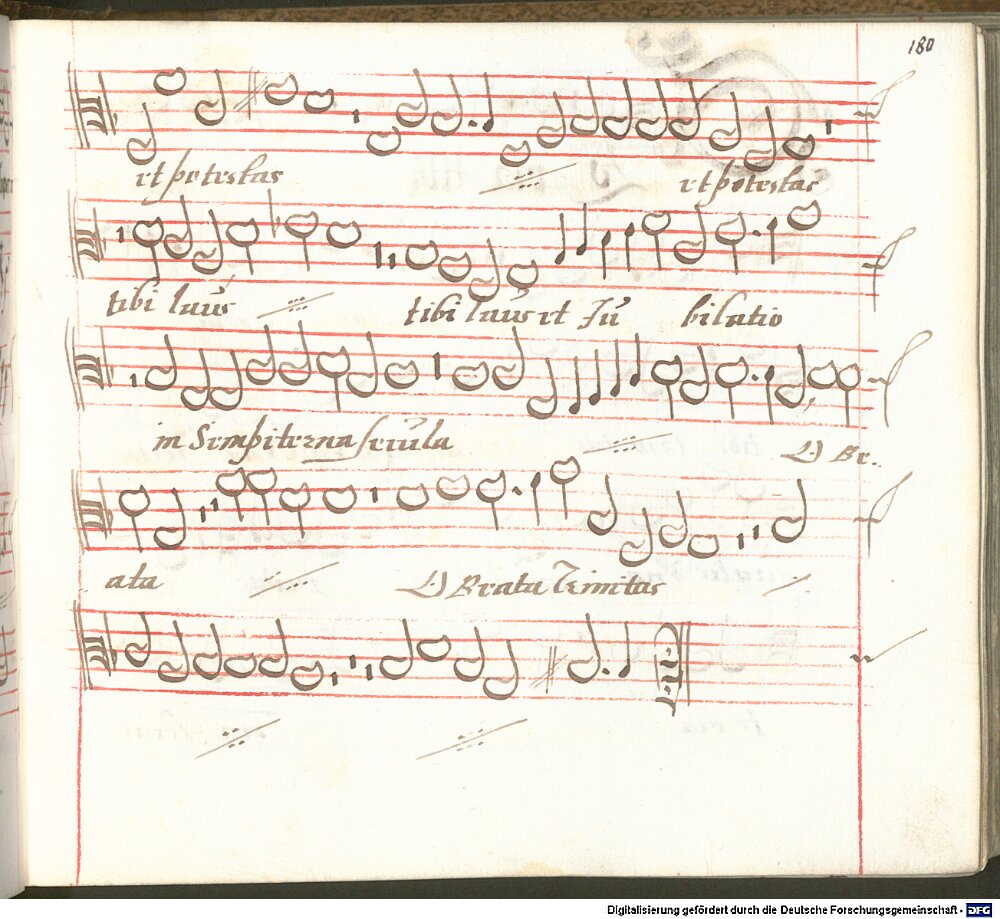 180
et potestas et potestas
tibi laus tibi laus et Ju bilatio
in Sempiterna secula O Be.
ata O Beata Trinitas
Digitalisierung gefördert durch die Deutsche Forschungsgemeinschaft - DFG